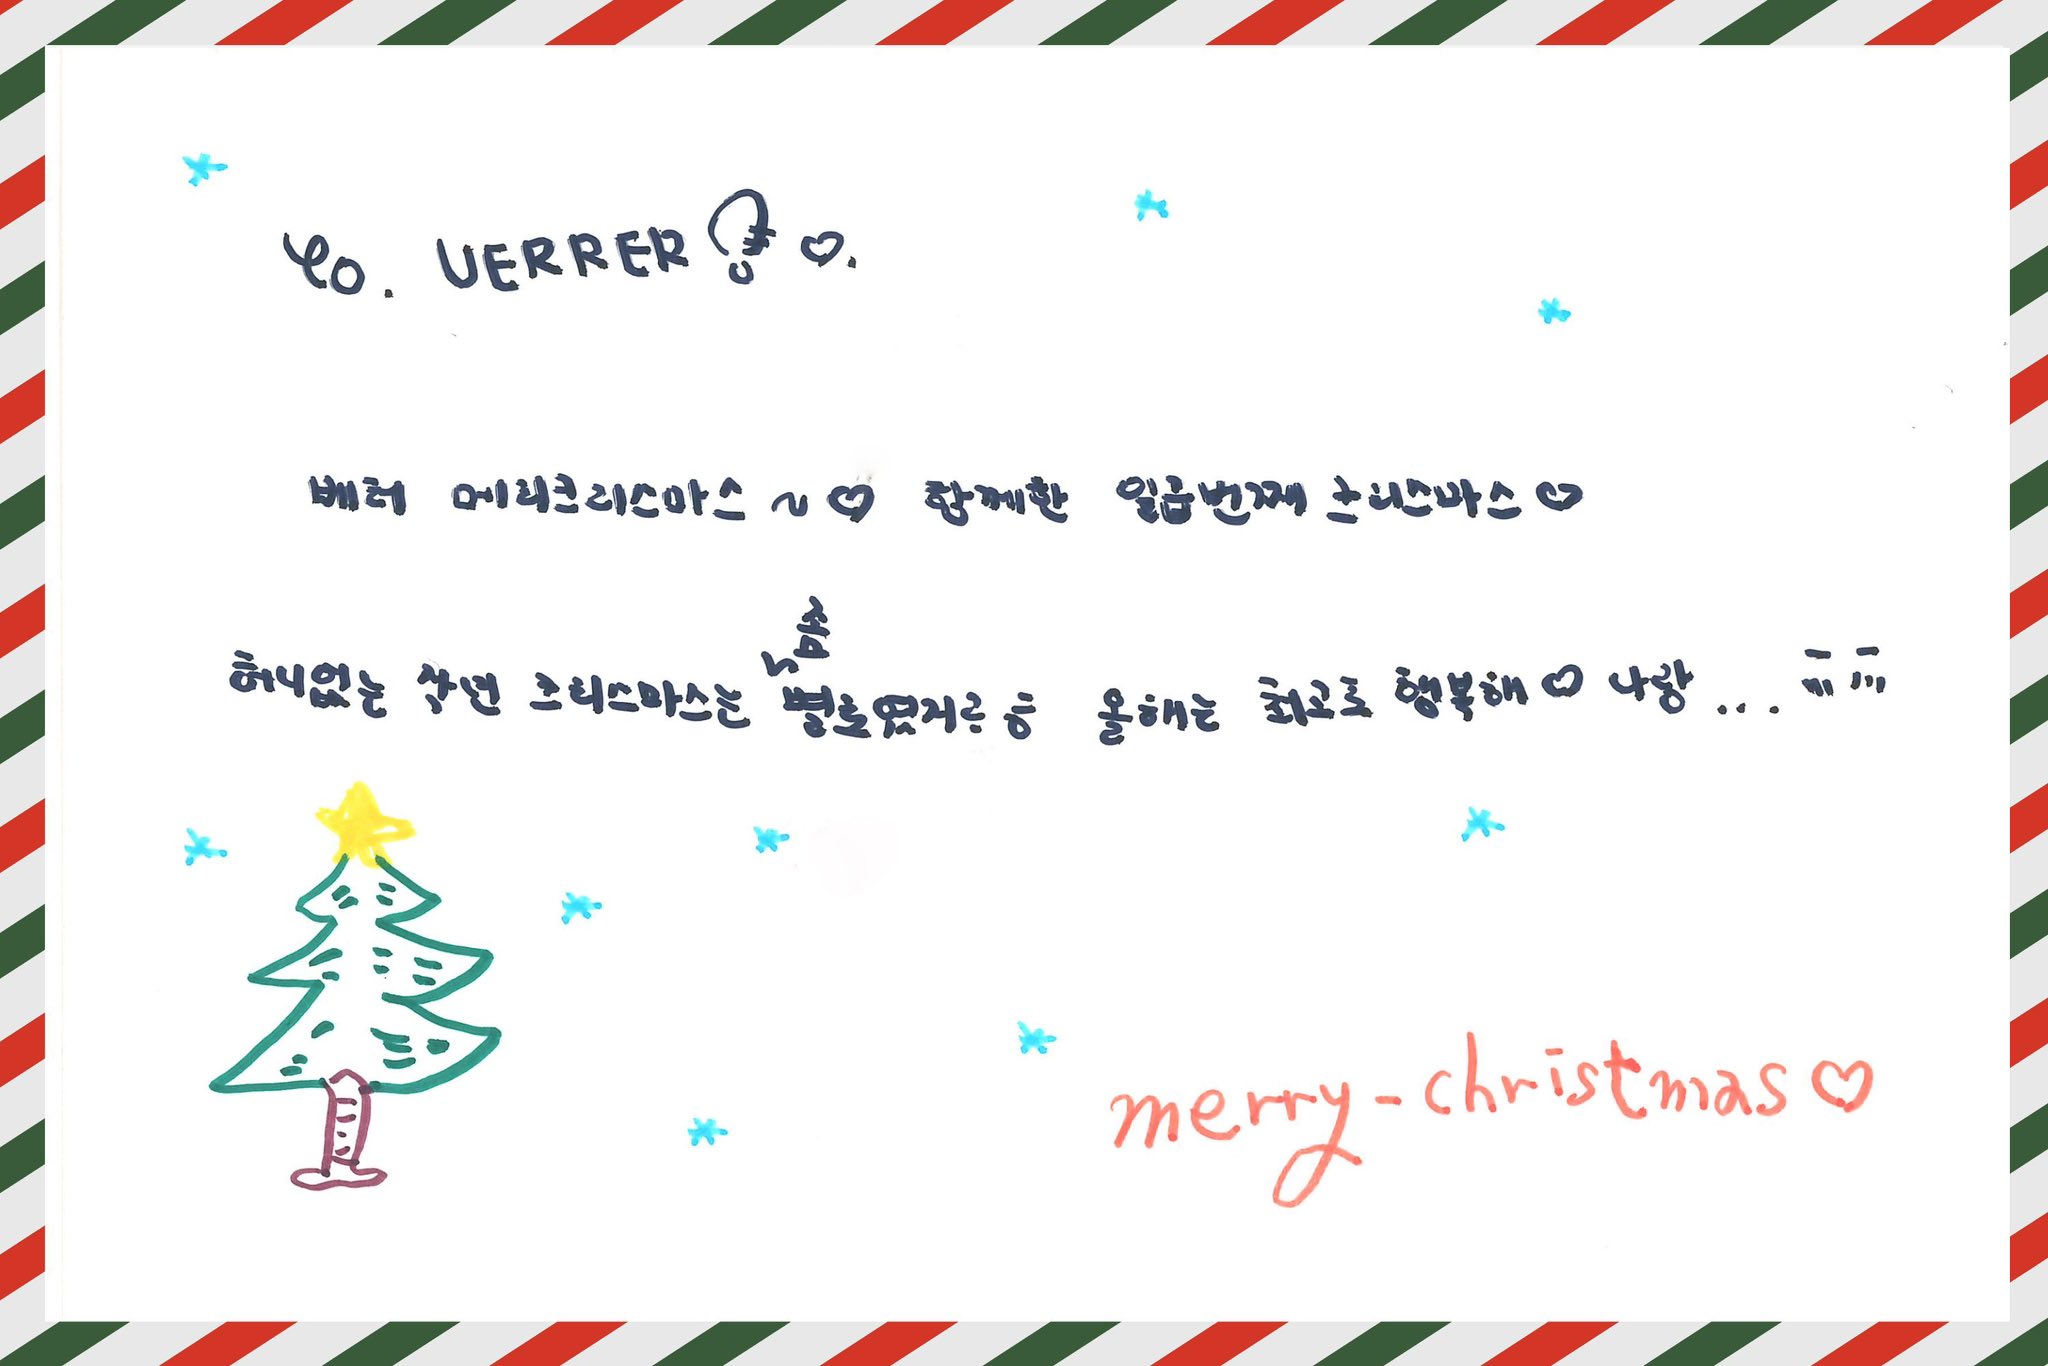 To. VERRER ♡.
베러 메리크리스마스 ~ ♡ 함께한 일곱번째 크리스마스 ♡
허니없는 작년 크리스마스는 좀 별로였지르흥 올해는 최고로 행복해 ♡ 나랑 ...
merry-christmas ♡